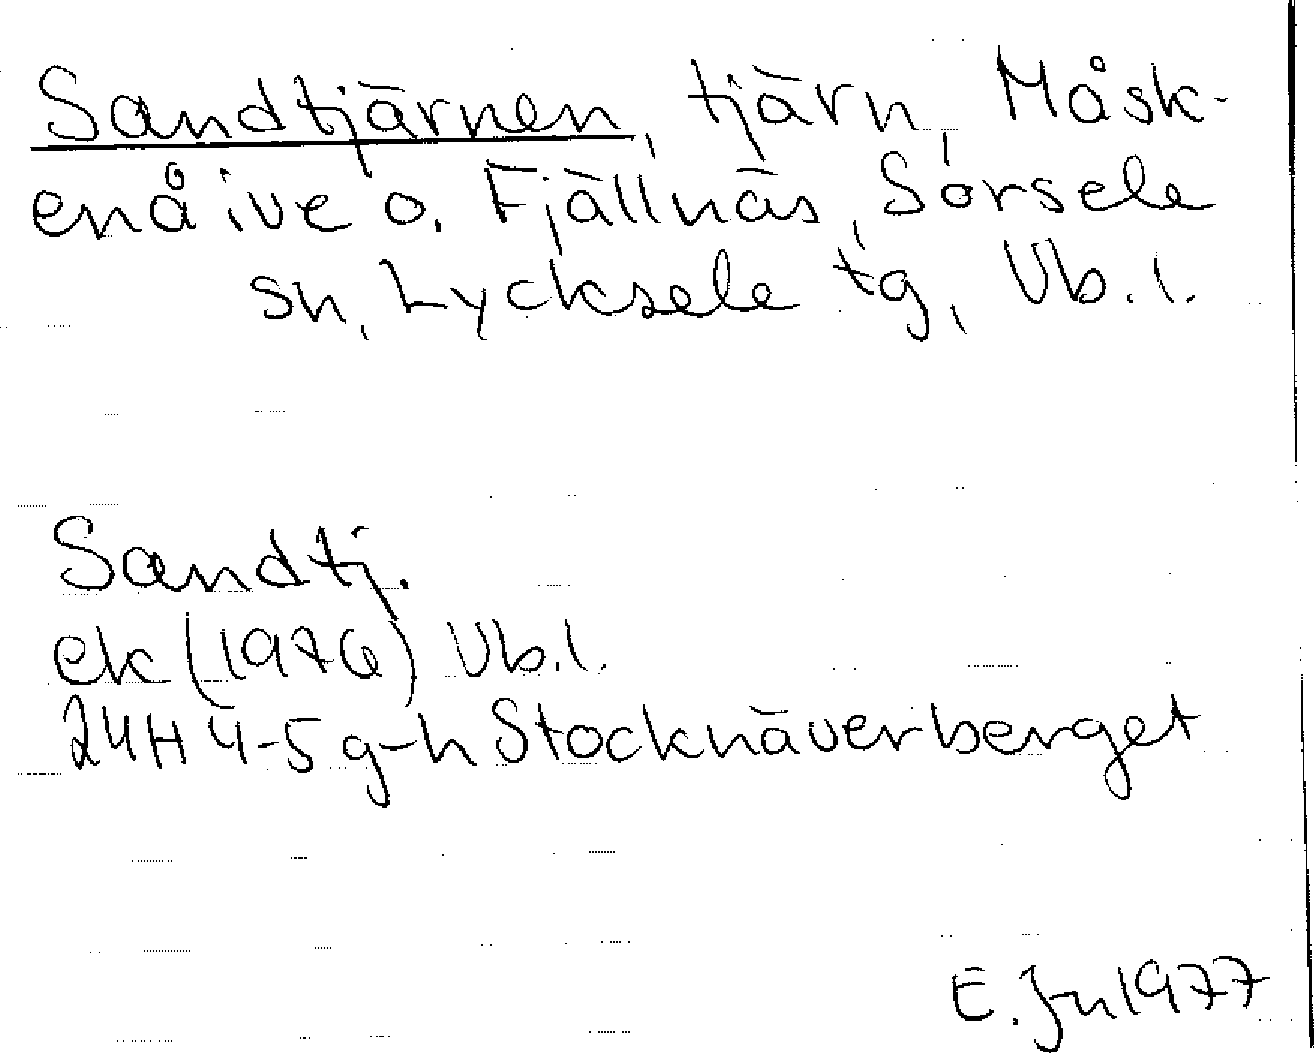 Sandtjärnen, tjärn, Måsk-
enåive o. Fjällnäs, Sorsele
sn, Lycksele tg, Vb. l.
Sandtj.
ek (1976) Vb.l.
24H 4-5 g-h Stocknäverberget
E. Jn 1977